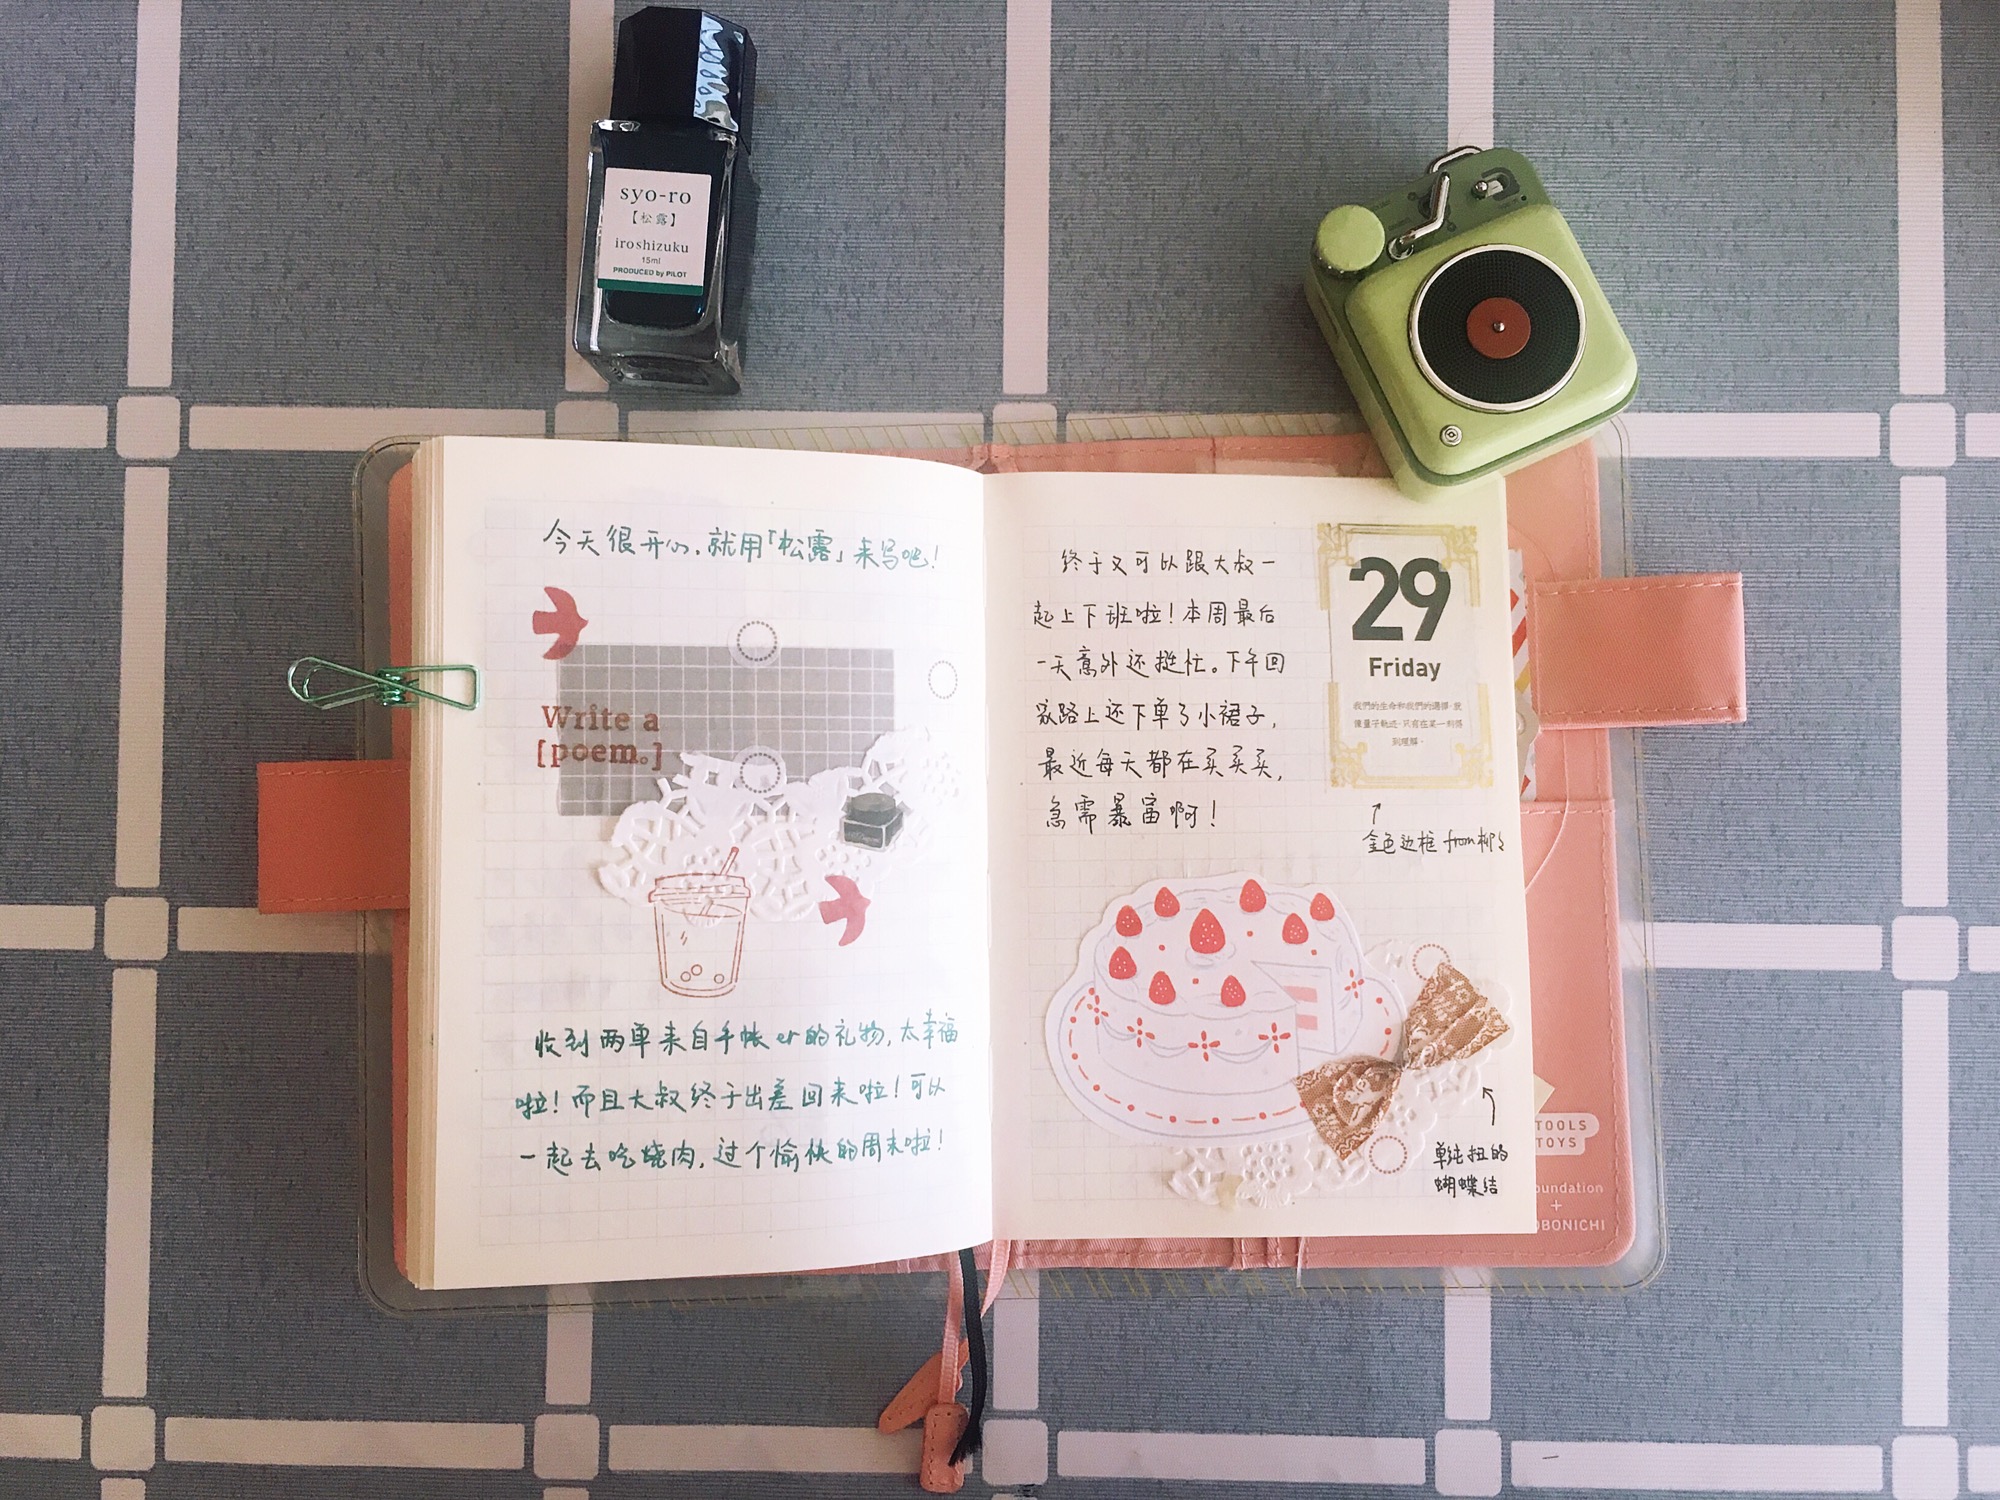 syo-ro
【松露】
iroshizuku
15ml
PRODUCED by PILOT
今天很开心,就用「松露」来写吧!
Write a
[poem.]
收到两单来自手帐er的礼物,太幸福
啦!而且大叔终于出差回来啦!可以
一起去吃烧肉,过个愉快的周末啦!
终于又可以跟大叔一
起上下班啦!本周最后
一天意外还挺忙。下午回
家路上还下单了小裙子,
最近每天都在买买买,
急需暴富啊!
29
Friday
我們的生命和我們的選擇,就
像量子軌迹,只有在某一刻得
到理解。
金色边框 from
单纯扭的
蝴蝶结
TOOLS
TOYS
oundation
+
OBONICHI